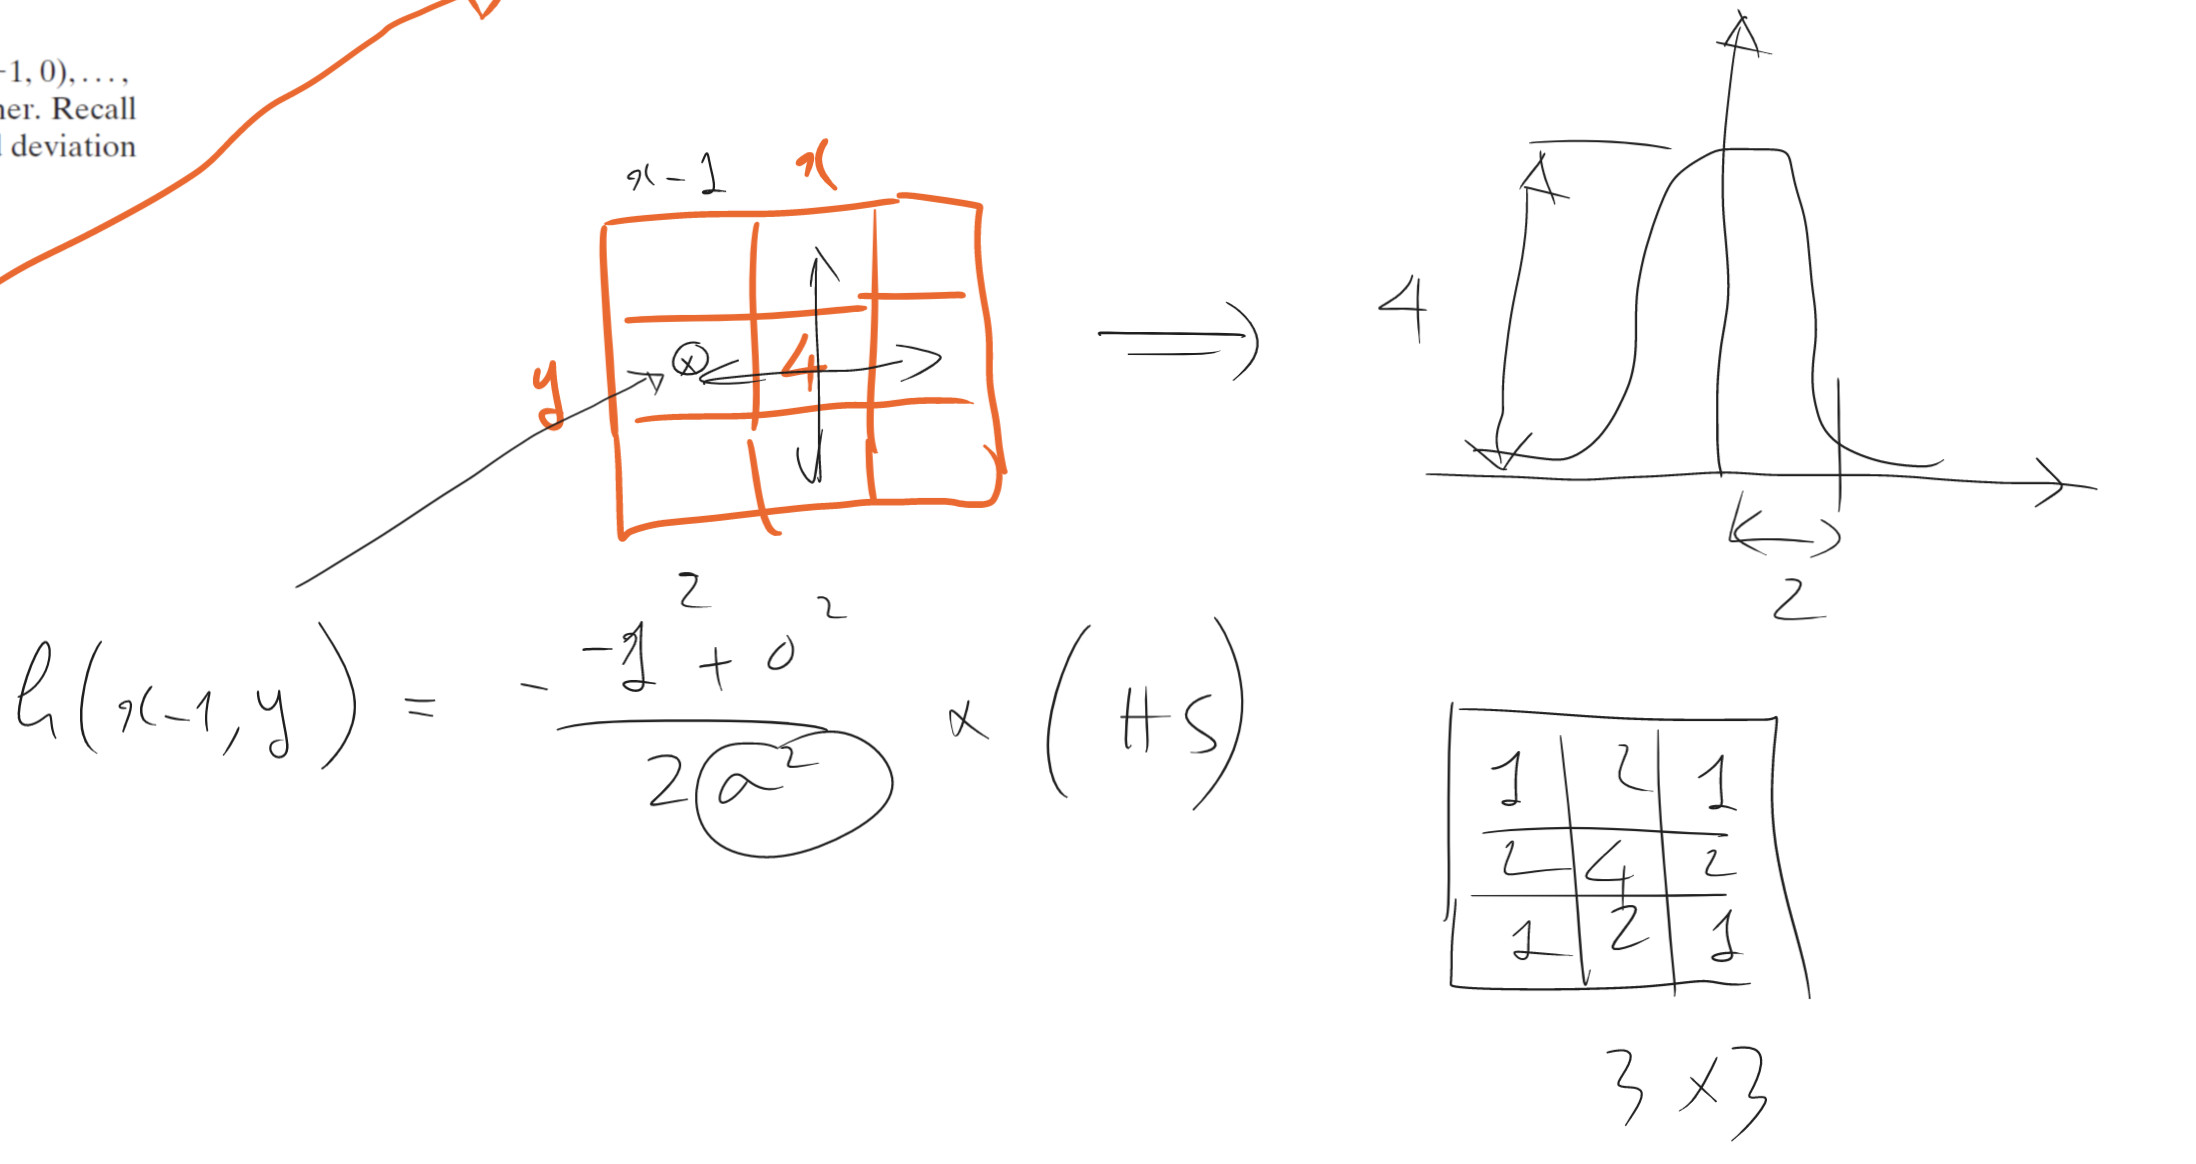 -1, 0), . . . ,
her. Recall
deviation
x-1 x
y 4
4
2
h(x-1, y) = - -1² + 0² / 2a²
1 2 1
2 4 2
1 2 1
3 x 3